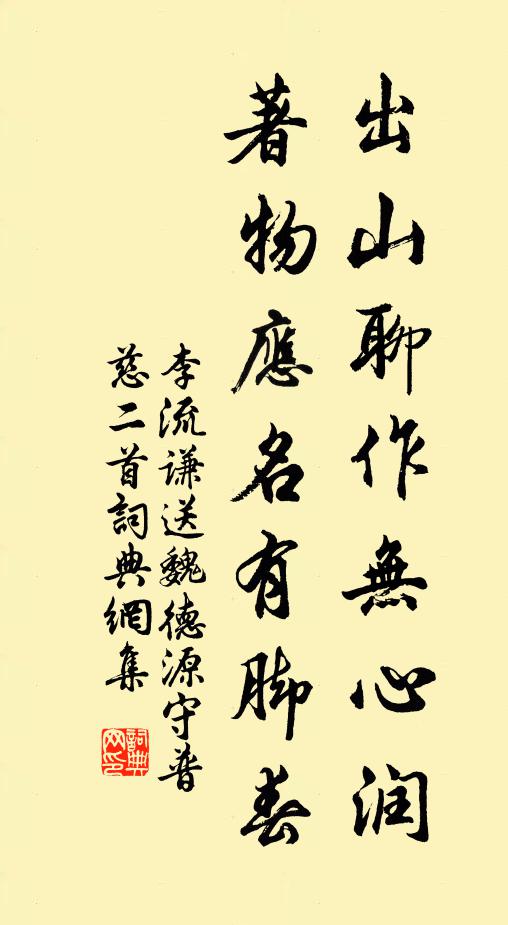 出山聊作無心润
著物應名有脚春
李流谦送魏德源守普
慈二首詞典網集
詞典網印